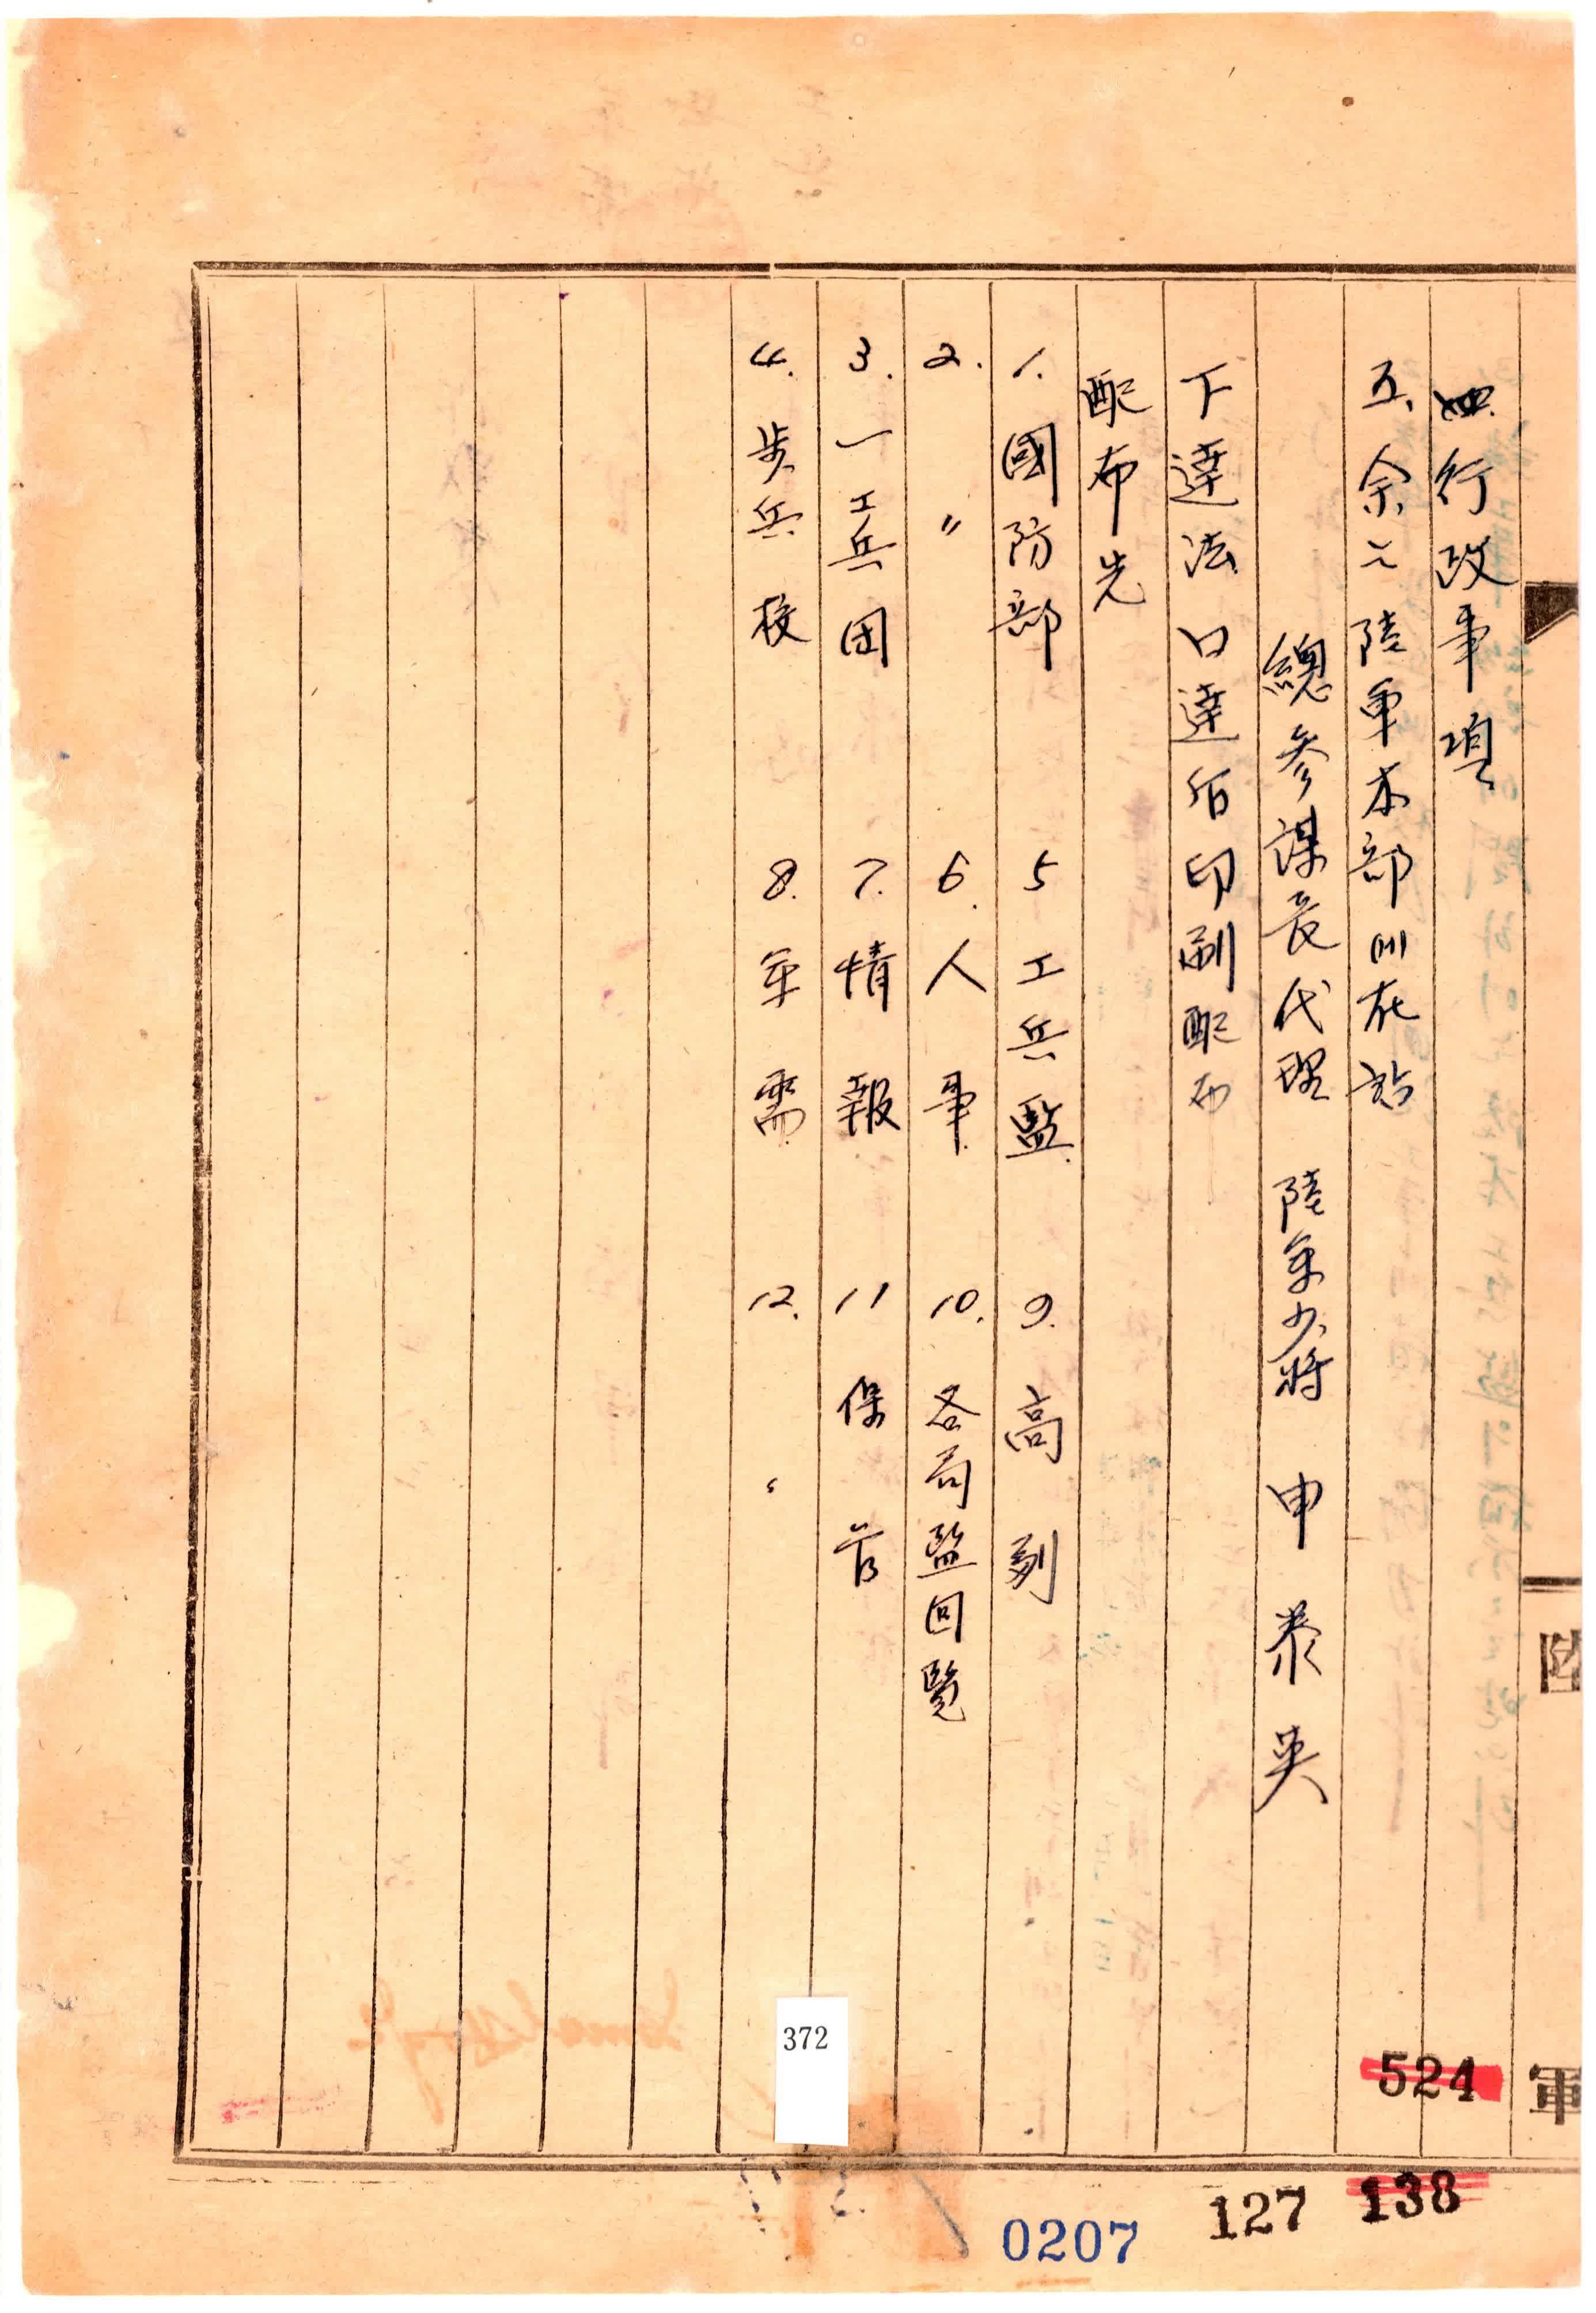 四. 行政事項
五. 余는 陸軍本部에 在함
總參謀長代理 陸軍少將 申泰英
下達法 口達后印刷配布
配布先
1. 國防部
5 工兵監
9. 高副
2. 〃
6. 人事
10. 各局監回覧
3. 一工兵団
7. 情報
11 保管
4. 歩兵校
8. 軍需
12. 〃
陸
軍
372
524
138
127
0207